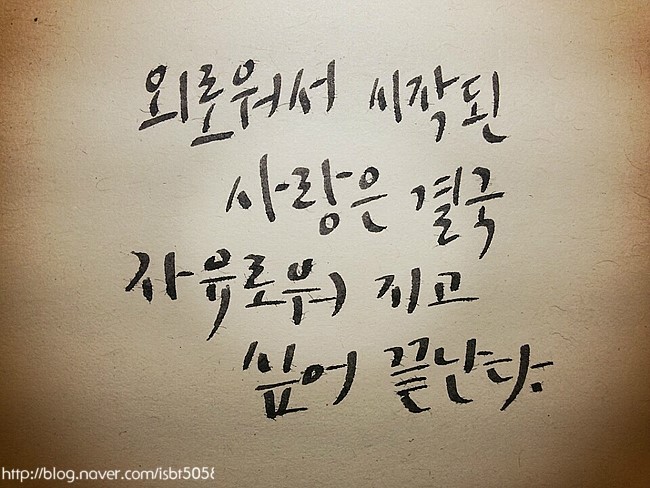 외로워서 시작된
사랑은 결국
자유로워 지고
싶어 끝난다.
http://blog.naver.com/isbt5058